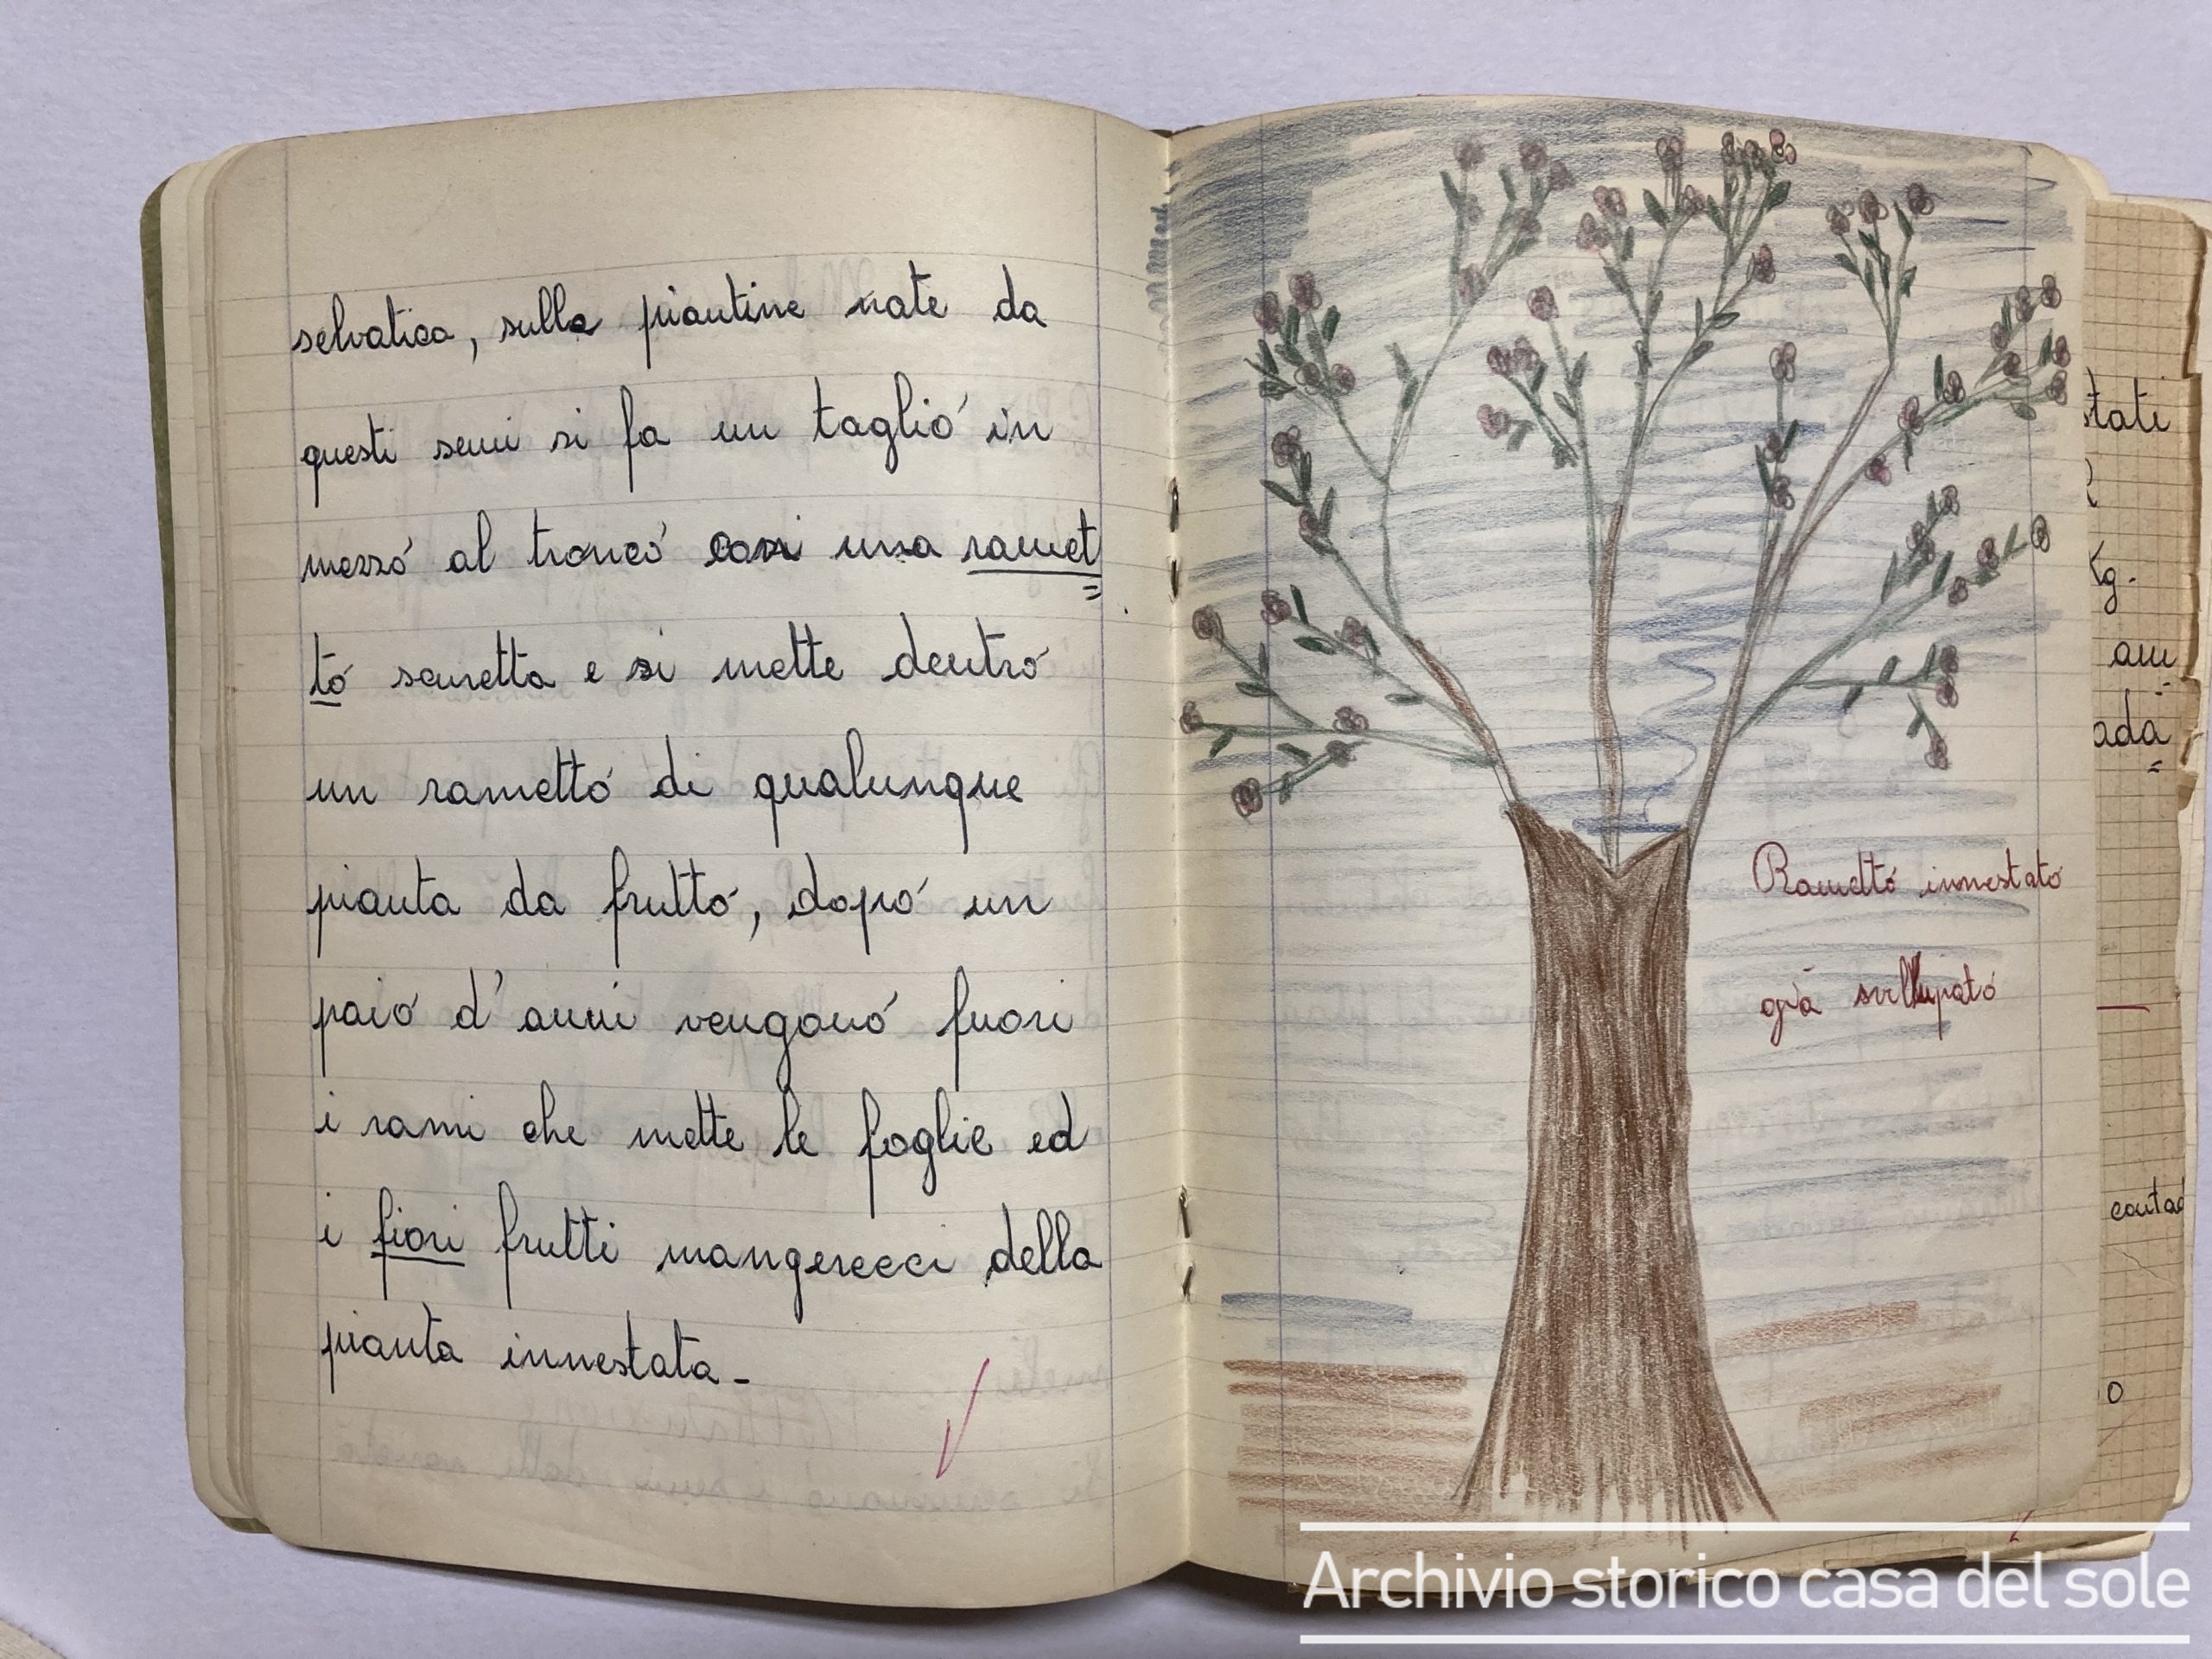 selvatica, sulle piantine nate da
questi semi si fa un taglio in
mezzo al tronco con una ramet
to seuretta e si mette dentro
un rametto di qualunque
pianta da frutto, dopo un
paio d'anni vengono fuori
i rami che mette le foglie ed
i fiori frutti mangerecci della
pianta innestata-
Rametto innestato
già svillupato
stati
Kg.
an
ada
contad
o
Archivio storico casa del sole